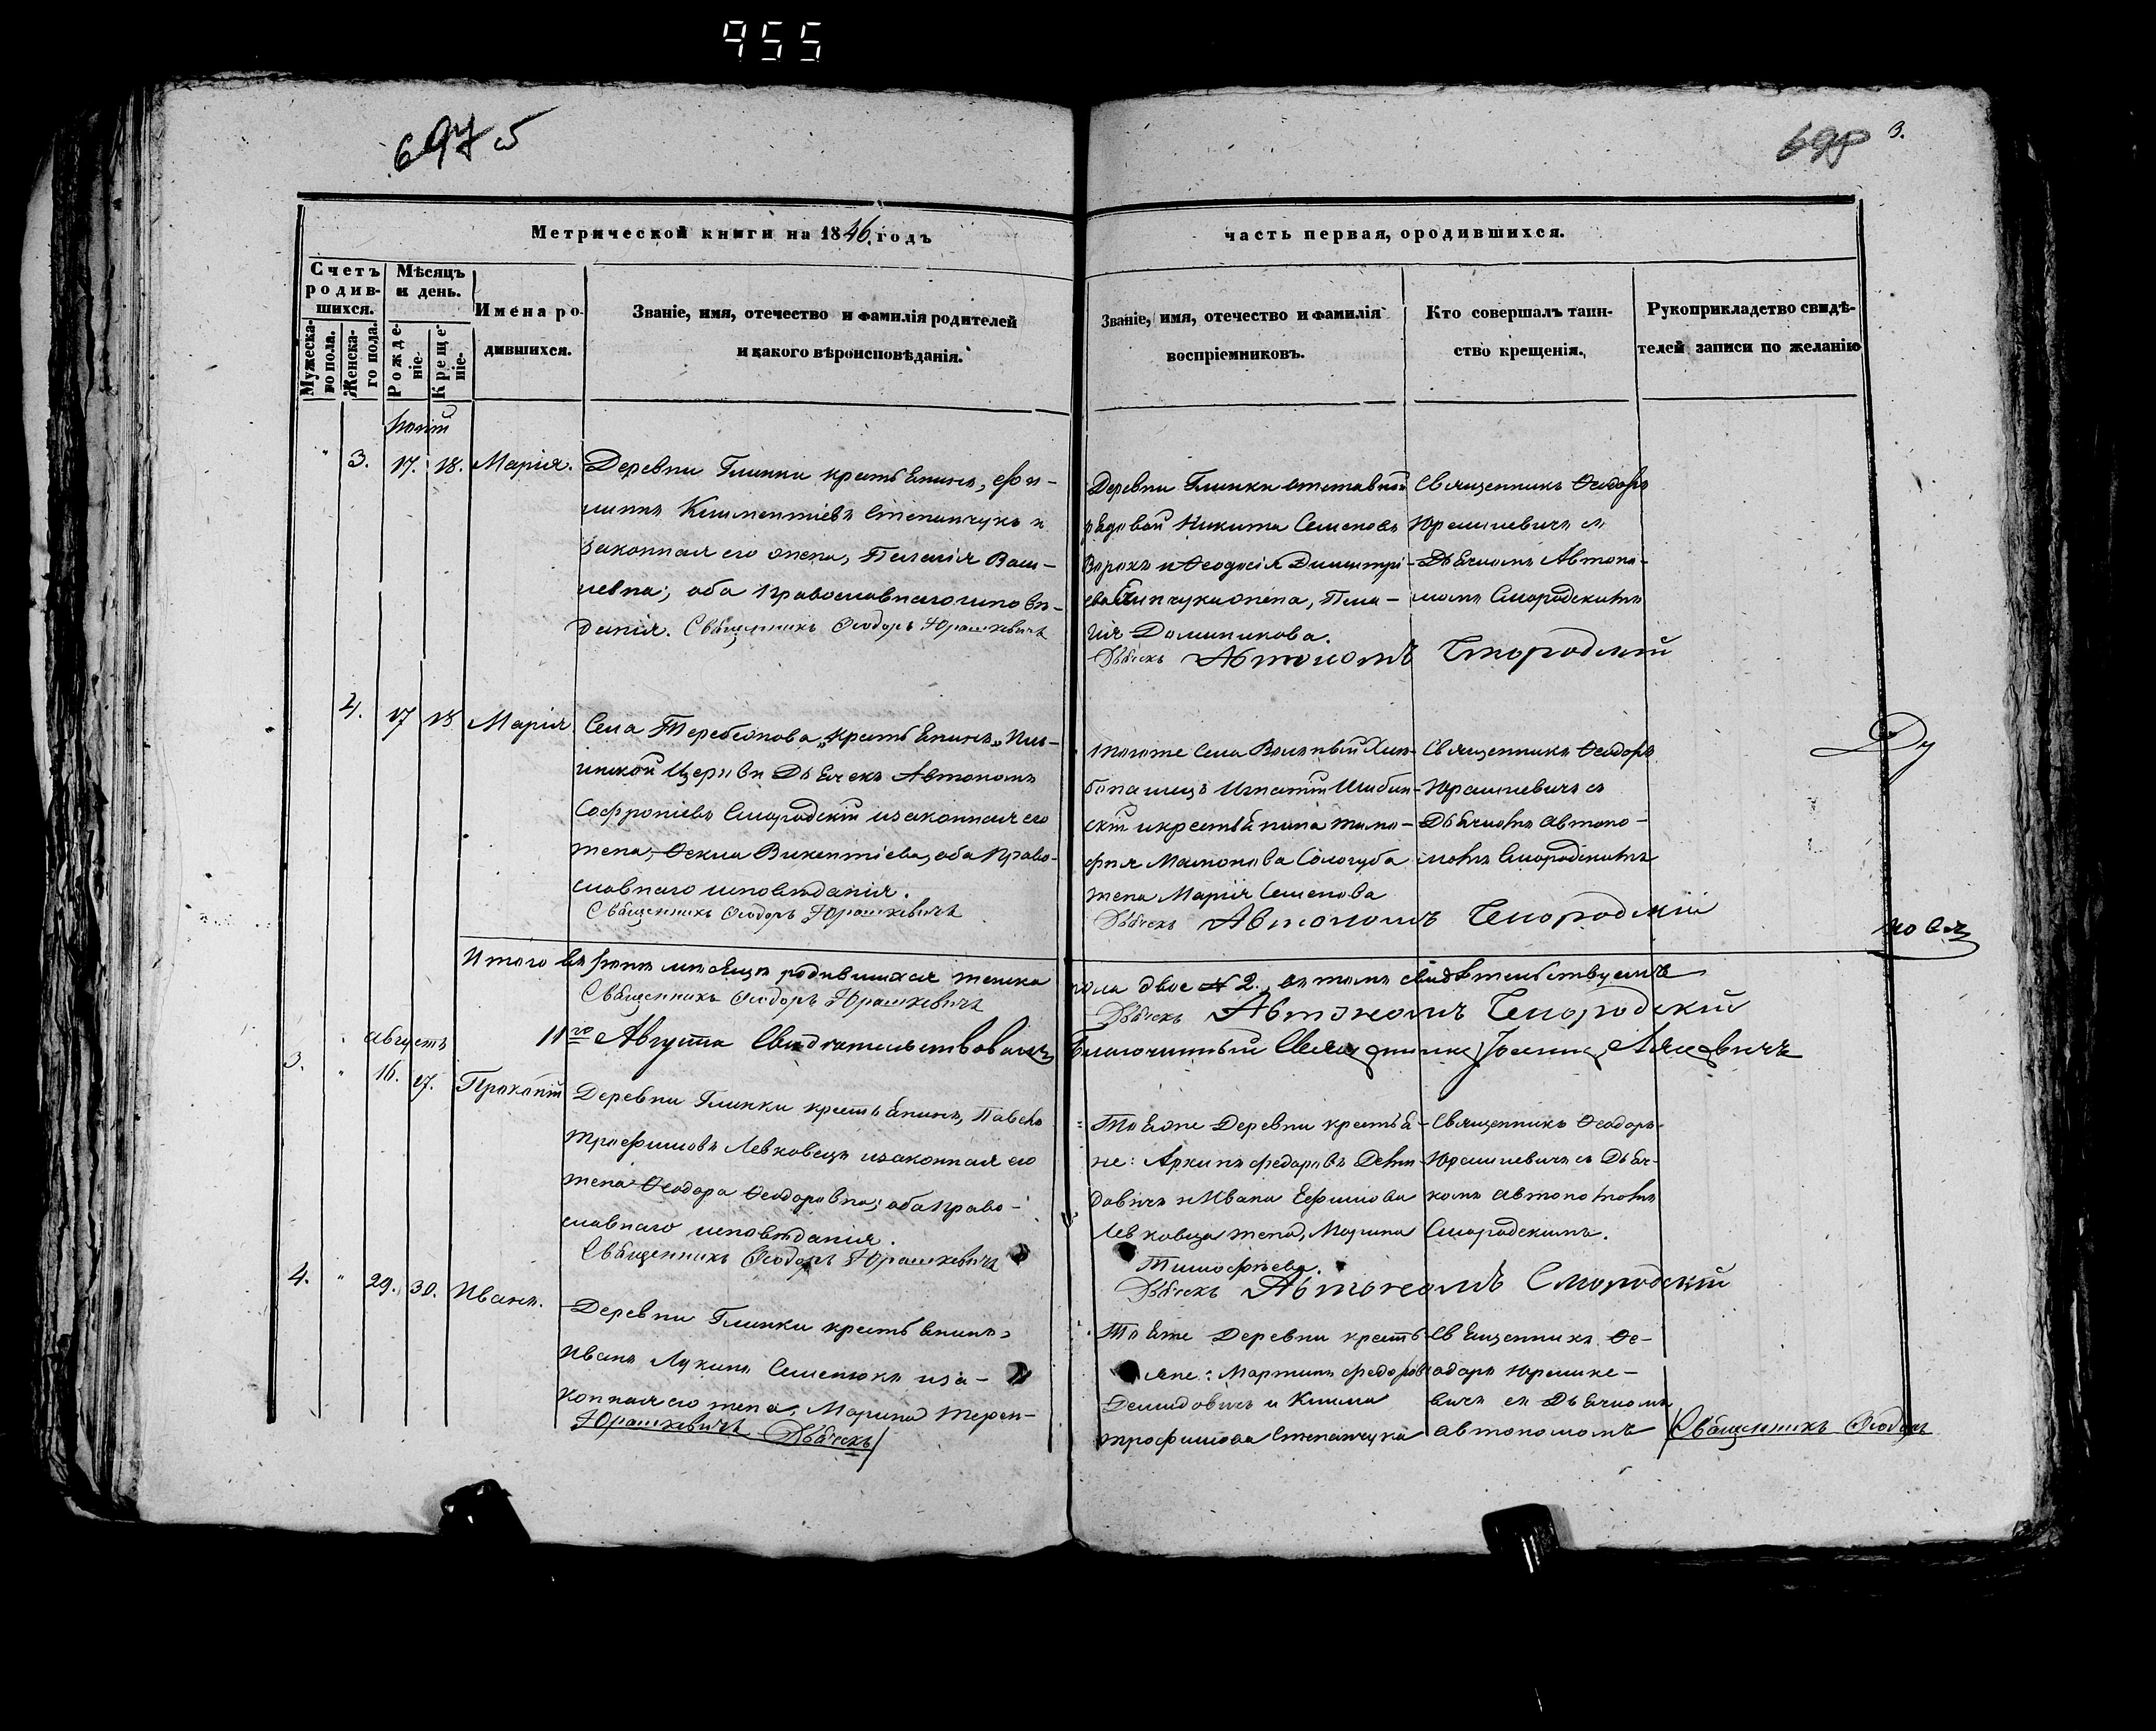 955
697 об
698 3.
Метрической книги на 1846. годъ
часть первая, о родившихся.
Счетъ родив-шихся.
Мужеска-го пола.
Женска-го пола.
Мѣсяцъ и день.
Рожде-ніе.
Креще-ніе.
Имена ро-дившихся.
Званіе, имя, отечество и фамилія родителей
и какого вѣроисповѣданія.
Званіе, имя, отечество и фамилія
воспріемниковъ.
Кто совершалъ таин-
ство крещенія.
Рукоприкладство свидѣ-
телей записи по желанію
3. 17. 18. Марія.
Деревни Глинки крестьянинъ, Фи-
липпъ Климентіевъ Степанчукъ и
законная его жена, Пелагія Васи-
левна; оба православнаго исповѣ-
данія. Священникъ Ѳеодоръ Юрашкевичъ
Деревни Глинки отставной
рядовой Никита Семеновъ
и Ѳеодосія Димитрі-
жена, Пела-
гія Доминикова.
Священникъ Ѳеодоръ
Юрашкевичъ съ
Дьячкомъ Автоно-
момъ Смородскимъ
Дьячекъ Автономъ Смородскій
4. 17 18 Марія
Села Теребежова крестьянинъ
Церкви Дьячекъ Автономъ
Софроніевъ Смородскій и законная его
жена, Ѳекла Викентіева, оба право-
славнаго исповѣданія.
Священникъ Ѳеодоръ Юрашкевичъ
тогоже Села Вольный Хлѣ-
бопашецъ Игнатій
и крестьянина Тимо-
фея Мамонова Сологуба
жена Марія Семенова
Священникъ Ѳеодоръ
Юрашкевичъ съ
Дьячкомъ Автоно-
момъ Смородскимъ
Дьячекъ Автономъ Смородскій
Итого въ мѣсяцѣ родившихся женска
пола двое № 2. въ томъ свидѣтельствуемъ
Священникъ Ѳеодоръ Юрашкевичъ
Дьячекъ Автономъ Смородскій
11го Августа Свидѣтельствовалъ
Благочинный Священникъ
Августъ
3. " 16. 17. Прокопій
Деревни Глинки крестьянинъ, Павелъ
Трофимовъ Левковецъ и законная его
жена Ѳеодора Ѳеодоровна; оба право-
славнаго исповѣданія.
Священникъ Ѳеодоръ Юрашкевичъ
Тояже Деревни крестья-
не: Архипъ Федоровъ Деми-
довичъ и Ивана Ефимова
Левковца жена, Марина
Тимофеева.
Священникъ Ѳеодоръ
Юрашкевичъ съ Дьяч-
комъ Автономомъ
Смородскимъ.
Дьячекъ Автономъ Смородскій
4. " 29. 30. Иванъ.
Деревни Глинки крестьянинъ
Иванъ Лукинъ Семенюкъ и за-
конная его жена, Марина Терен-
Юрашкевичъ Дьячекъ
Тояже Деревни кресть-
яне: Мартинъ Федоровъ
Демидовичъ и Клима
Трофимова Степанчука
Священникъ Ѳе-
одоръ Юрашке-
вичъ съ Дьячкомъ
Автономомъ
Священникъ Ѳеодоръ